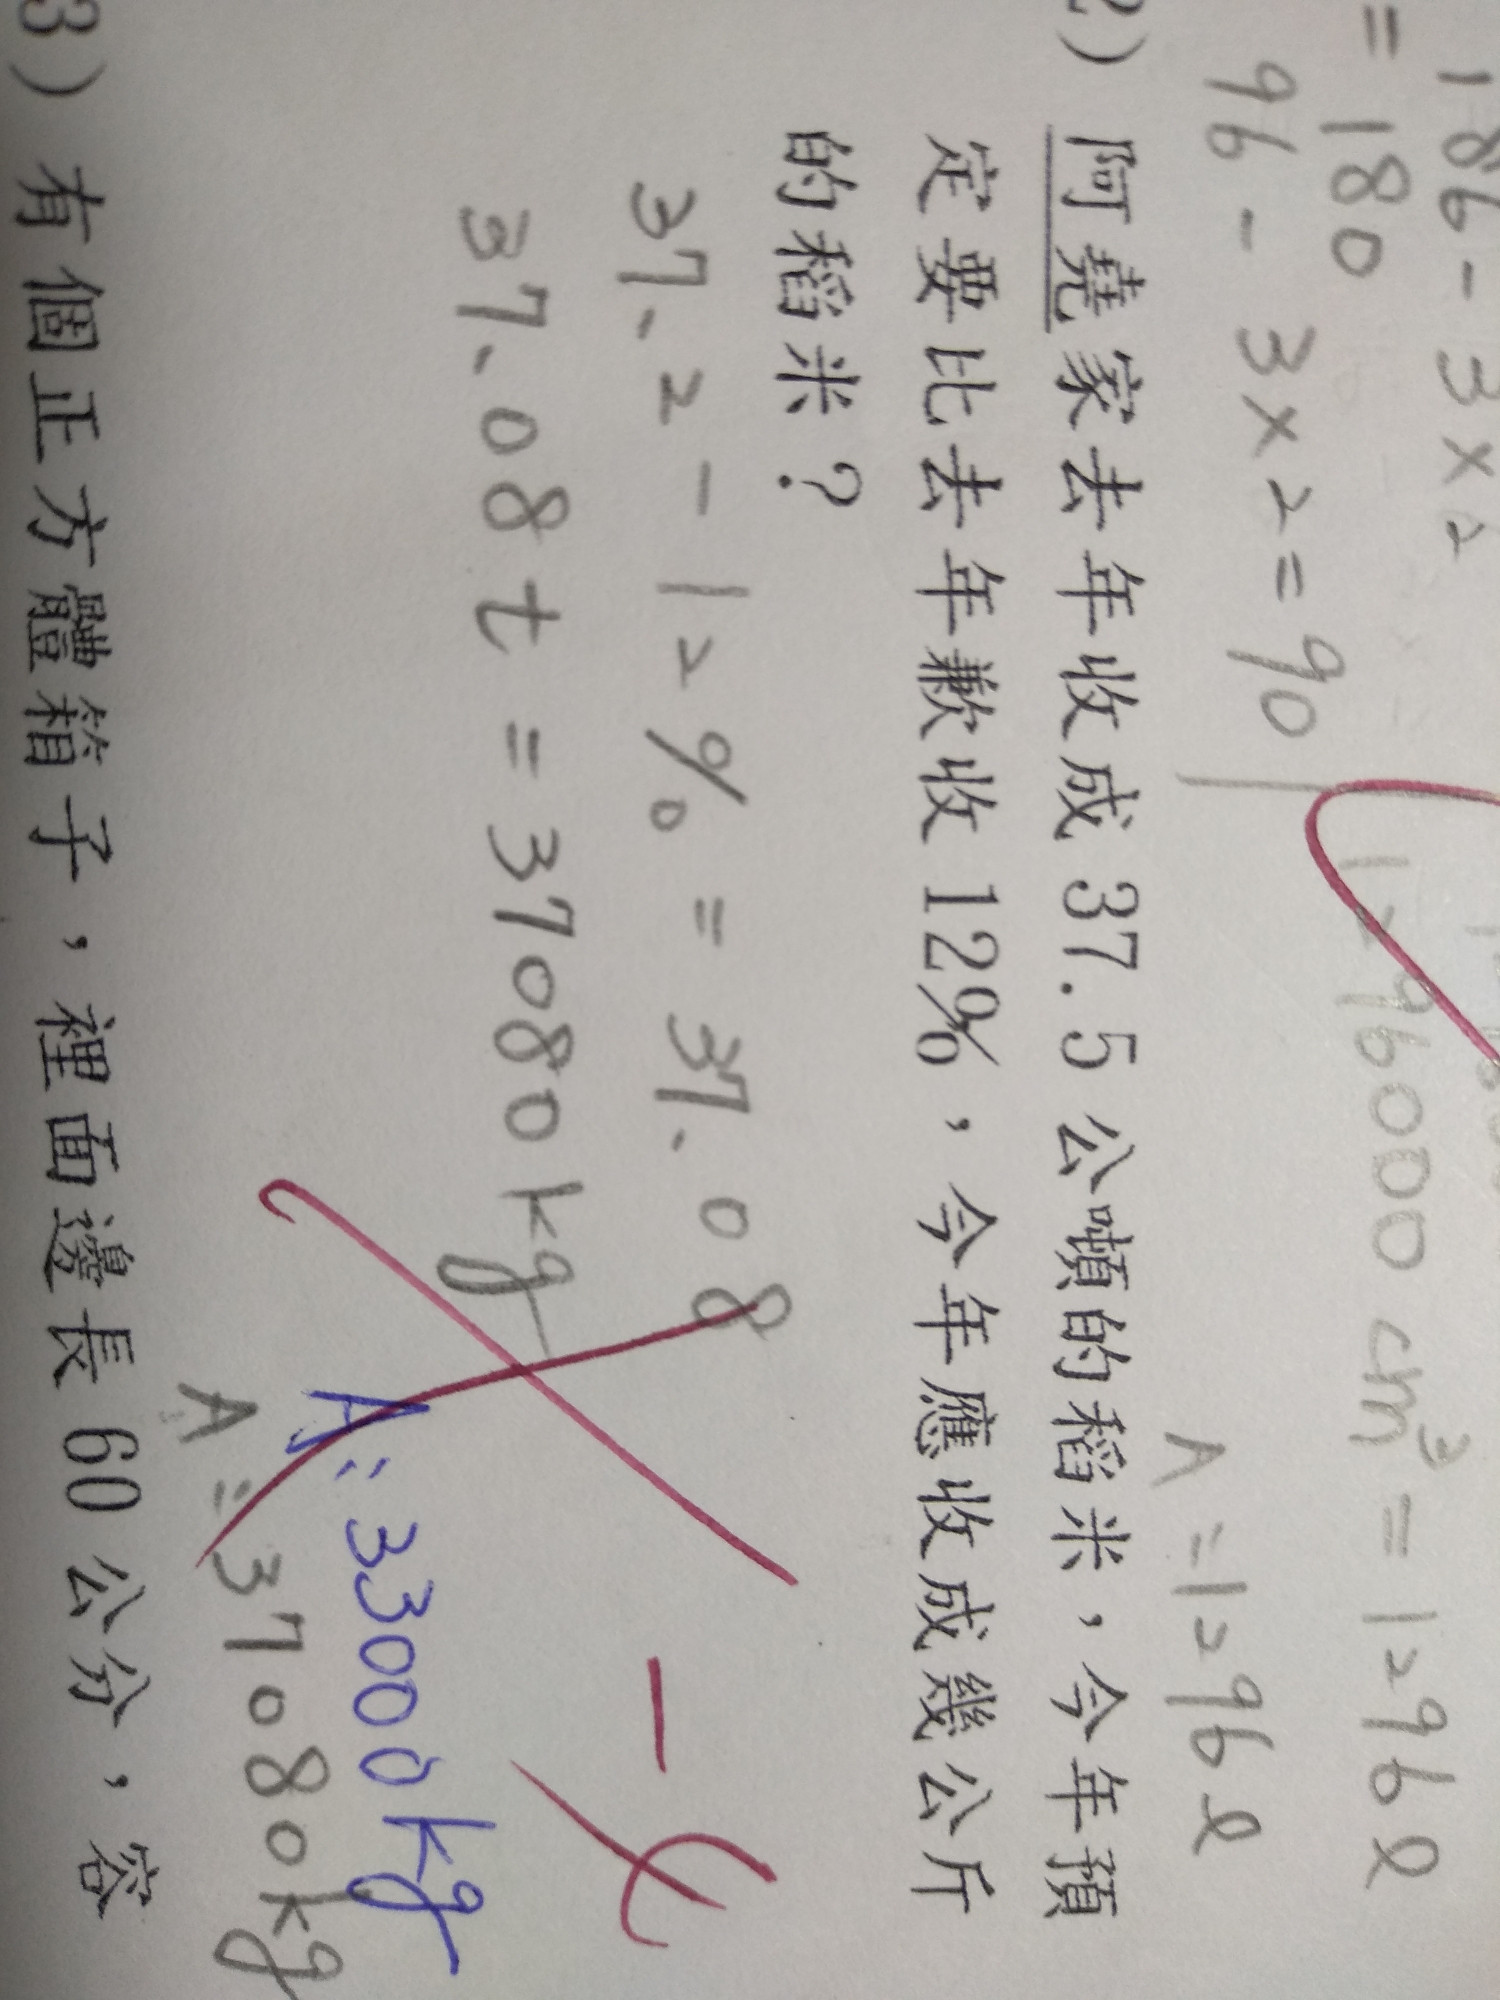 186-3×2
=180
96-3×2=90
1296000 cm³=1296ℓ
A:1296ℓ
2) 阿堯家去年收成 37.5 公噸的稻米，今年預
定要比去年歉收12%，今年應收成幾公斤
的稻米？
37.2-12%=37.08
37.08t=37080kg
-4
A:33000kg
A:37080kg
3) 有個正方體箱子，裡面邊長 60 公分，容